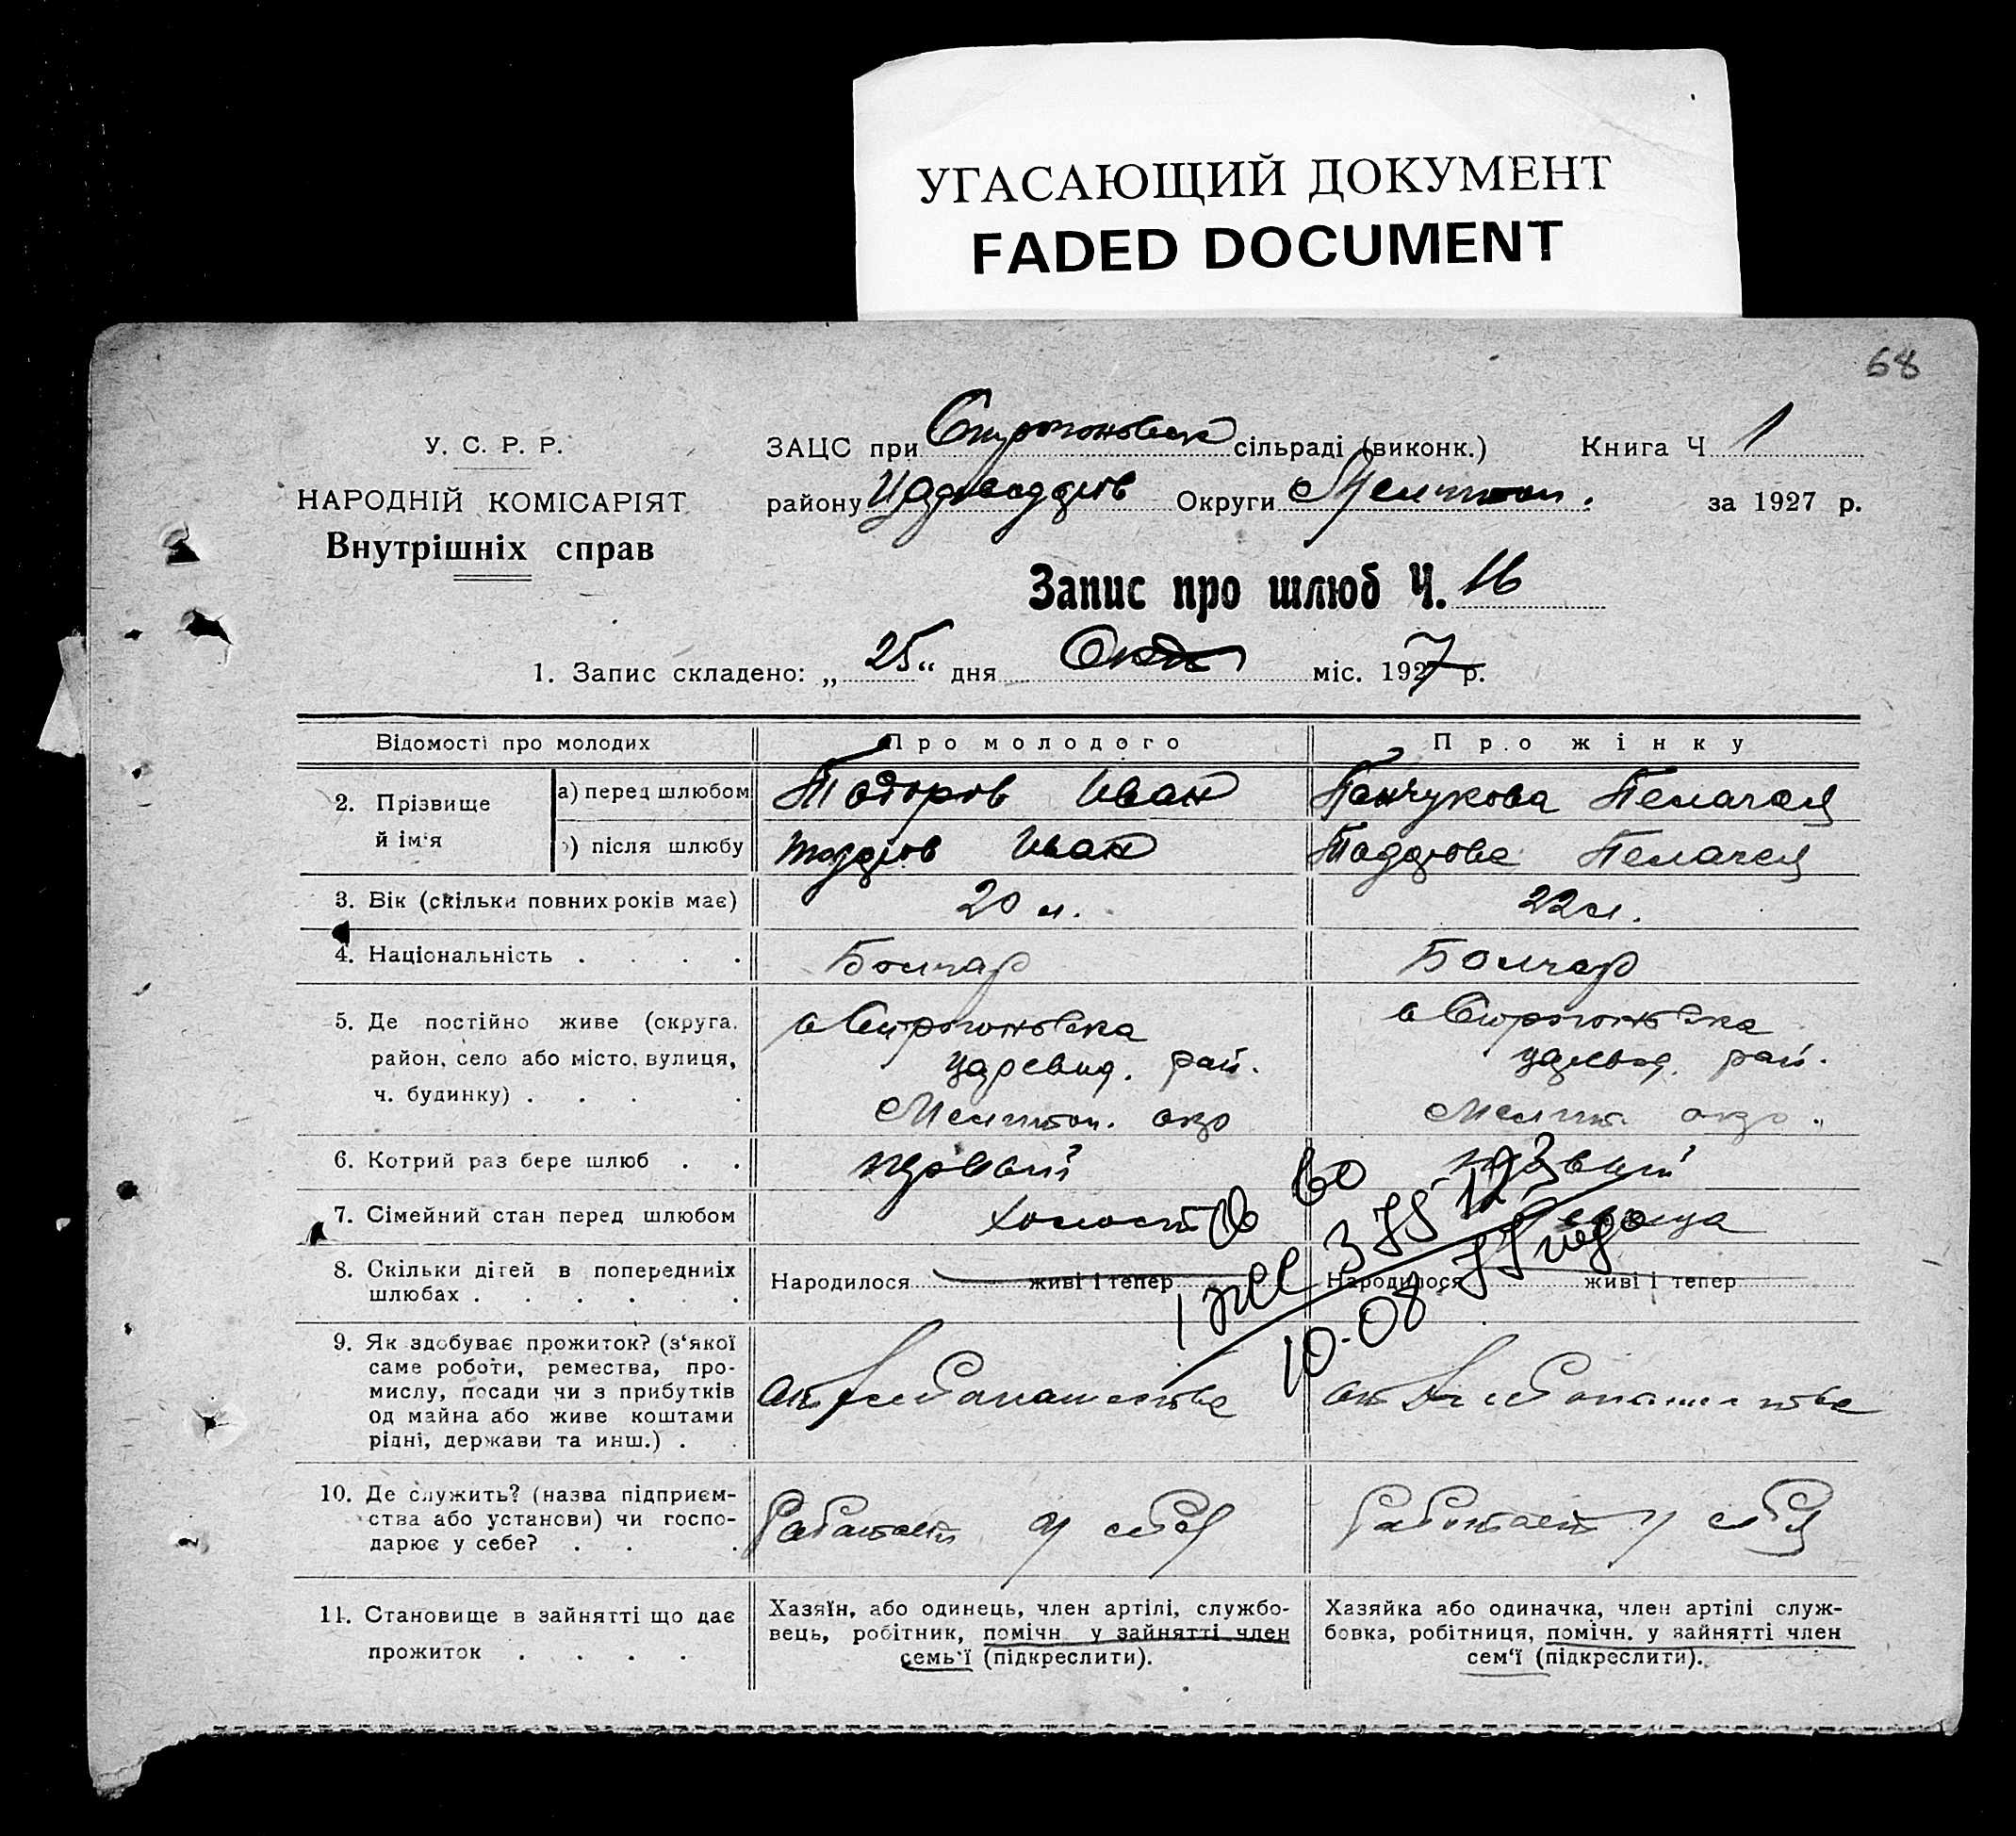 УГАСАЮЩИЙ ДОКУМЕНТ
FADED DOCUMENT
68
У. С. Р. Р.
НАРОДНІЙ КОМІСАРІЯТ
Внутрішніх справ
ЗАЦС при сільраді (виконк.) Книга Ч 1
району Округи за 1927 р.
Запис про шлюб Ч. 16
1. Запис складено: „ 25 “ дня Окт міс. 1927 р.
Відомості про молодих Про молодого Про жінку
2. Прізвище й ім'я
а) перед шлюбом Тодоров Иван Панчукова Пелагея
б) після шлюбу Тодоров Иван Тодорова Пелагея
3. Вік (скільки повних років має) 20 л. 22 л.
4. Національність . . . . Болгар Болгар
5. Де постійно живе (округа,
район, село або місто, вулиця,
ч. будинку) . . . .
с Строгоновка
царевод. рай.
Мелитоп. окр
с Строгоновка
царевод. рай.
Мелит. окр.
6. Котрий раз бере шлюб . . первый первый
7. Сімейний стан перед шлюбом холост девица
8. Скільки дітей в попередниіх
шлюбах . . . . . .
Народилося живі і тепер Народилося живі і тепер
10-08
9. Як здобуває прожиток? (з'якої
саме роботи, ремества, про-
мислу, посади чи з прибутків
од майна або живе коштами
рідні, держави та инш.) . .
от хлебопашества от хлебопашества
10. Де служить? (назва підприєм-
ства або установи) чи госпо-
дарює у себе? . . .
Работает у себя Работает у себя
11. Становище в зайнятті що дає
прожиток . . . .
Хазяїн, або одинець, член артілі, службо-
вець, робітник, помічн. у зайнятті член
семь'ї (підкреслити).
Хазяйка або одиначка, член артілі служ-
бовка, робітниця, помічн. у зайнятті член
сем'ї (підкреслити).